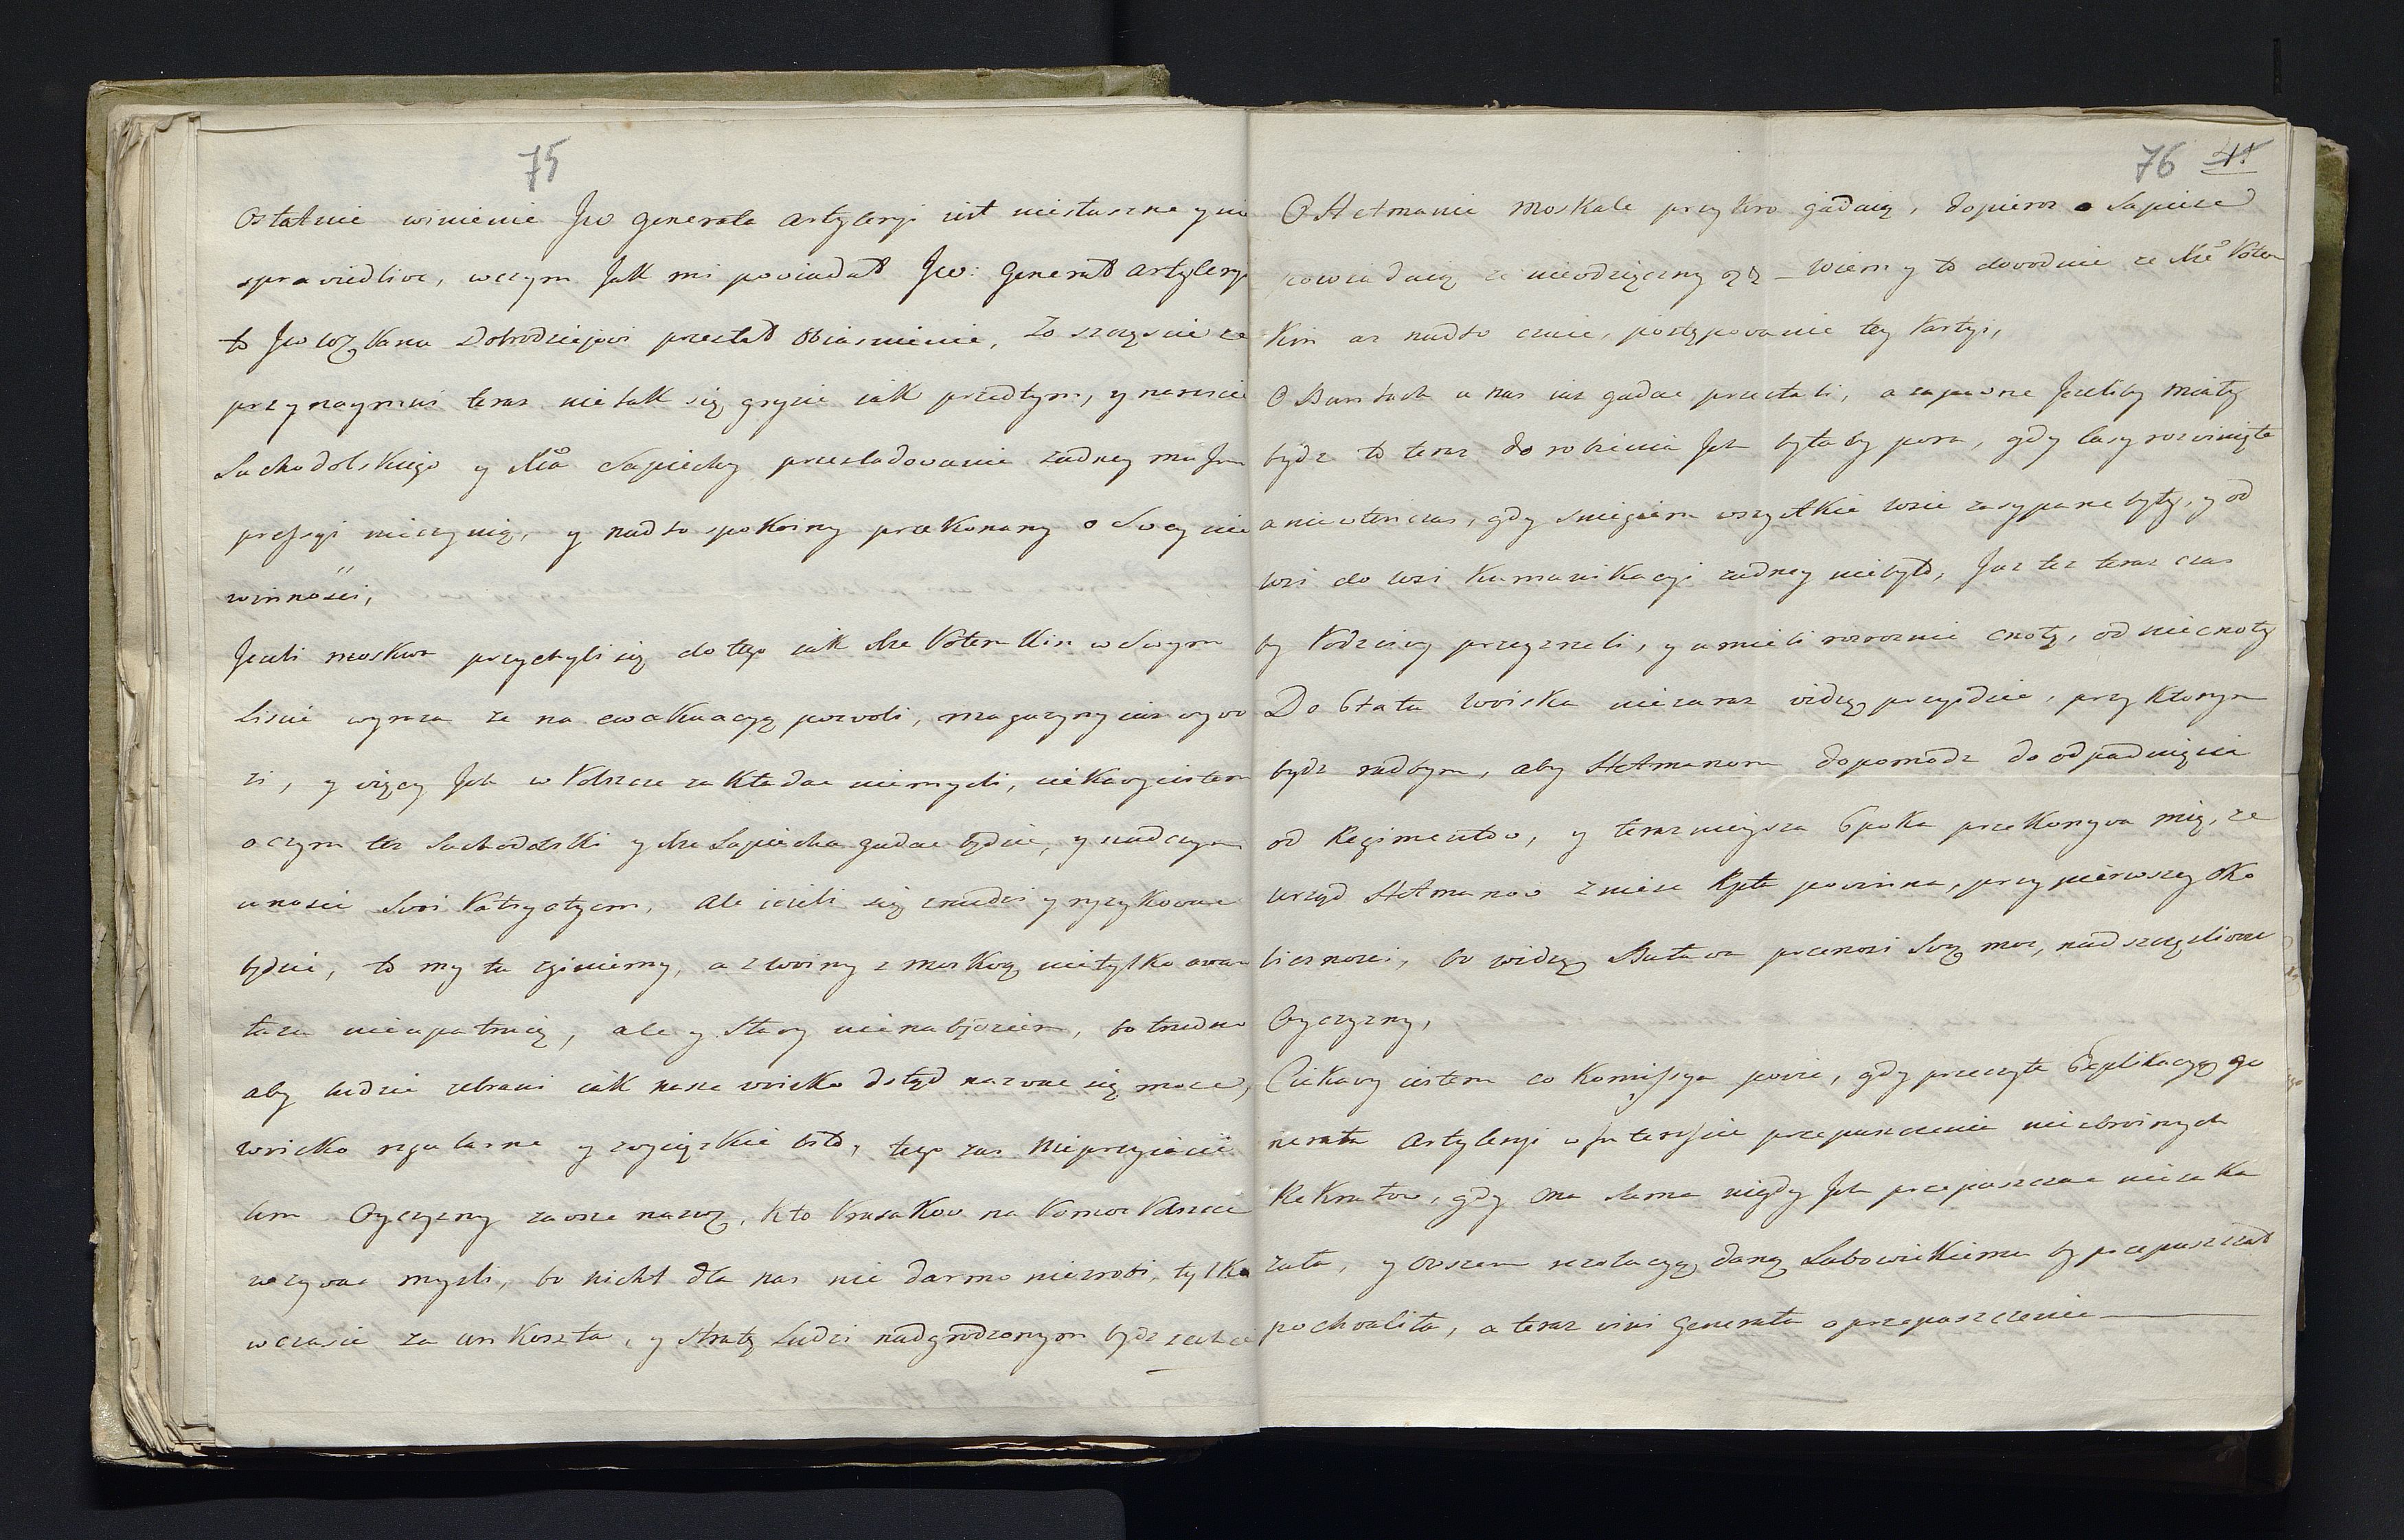 75
Ostatnie winienie Jw Generała Artyleryi iest niesłuszne y nie
sprawiedliwe, wczym Jak mi powiadał Jw: Generał Artyleryi
to Jw Panu Dobrodziejowi przesłał obiasnienie, To szczęscie ze
przynaymni teraz nie tak się gryzie iak przedtym, y naresciе
Suchodolskiego y Sapiechy przesladowanie zadney mu Jm
pressyi nieczynią, y nadto spokoiny przekonany o Swey nie
winnosci,
Jezeli Moskwa przychyli się do tego iak Xże Potemkin w Swym
liscie wyraza ze na ewakuacyą pozwoli, magazyny iuz wywo
zi, y więcy Jch w Polszcze zakładac niemysli, ciekawy iestem
o czym tez Suchodolski y Xże Sapiecha gadac będzie, y nad czym
unosic Swoi Patryotyzm, Ale iezeli się znudzi y ryzykowac
będzie, to my tu zginiemy, a z woiny z Moskwą nietylko awan
taza nieupatruię, ale y Sławy nienabędziem, bo trudno
aby ludzie zebrani iak nasze woisko dotąd nazwac się moze,
woisko regularne y zwycięzkie bili, tego zas Nieprzyiacie
lem Oyczyzny zawsze nazwę, kto Prusakow na Pomoc Polszcze
wzywac mysli, bo nicht dla nas nic darmo niezrobi, tylko
wczasie za un koszta, y stratę Ludzi nadgrodzonym bydz zechce
76 41
O Hetmanie Moskale przykro gadaią, dopieroz o Sapieze
powiadaią ze niewdzięczny – Wiemy to dowodnie ze Xże Potem
kin az nadto czuie, postępowanie tey Partyi,
O Buntach u nas iuz gadac przestali, a zapewne Jezeliby miały
bydz to teraz do robienia Jch byłaby pora, gdy lasy rozwinięte
a niewtenczas, gdy sniegiem wszystkie wsie zasypane były, y od
wsi do wsi kumunikacyi zadney niebyło, Juz tez teraz czas
by Podzciwy przeyrzeli, y umieli rozroznic cnotę, od niecnoty
Do Etatu woiska niezaraz widzę przyydzie, przy ktorym
bydz radbym, aby Hetmanom dopomodz do odpadnięcia
od Regimentow, y terazniejsza Epoka przekonywa mię, ze
urząd Hetmanow zniesc Rpta powinna, przy pierwszey Oko
licznosci, bo widzę Buława przenosi Swą moc, nad szczęsliwosc
Oyczyzny,
Ciekawy iestem co Kommissya powie, gdy przeczyta Explikacyą ge
nerała Artyleryi w Jnteressie przepuszczenia niezbroinych
Rekrutow, gdy ona sama nigdy Jch przepuszczac niezaka
zała, y owszem rezolucyą daną Lubowickiemu by przepuszczał
pochwaliła, a teraz wini Generała o przepuszczenie